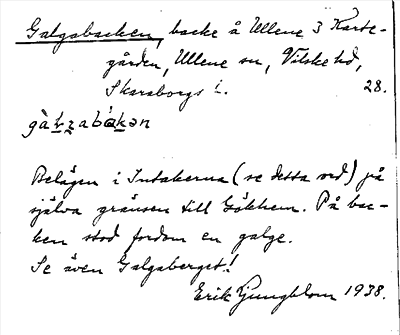 Galgabacken, backe å Ullene 3 Karls-
gården, Ullene sn, Vilske hd,
Skaraborgs l. 28.
gàlzabákən
Belägen i Intakerna (se detta ord) på
själva gränsen till Gökhem. På bac-
ken stod fordom en galge.
Se även Galgaberget!
Erik Ljungblom 1938.